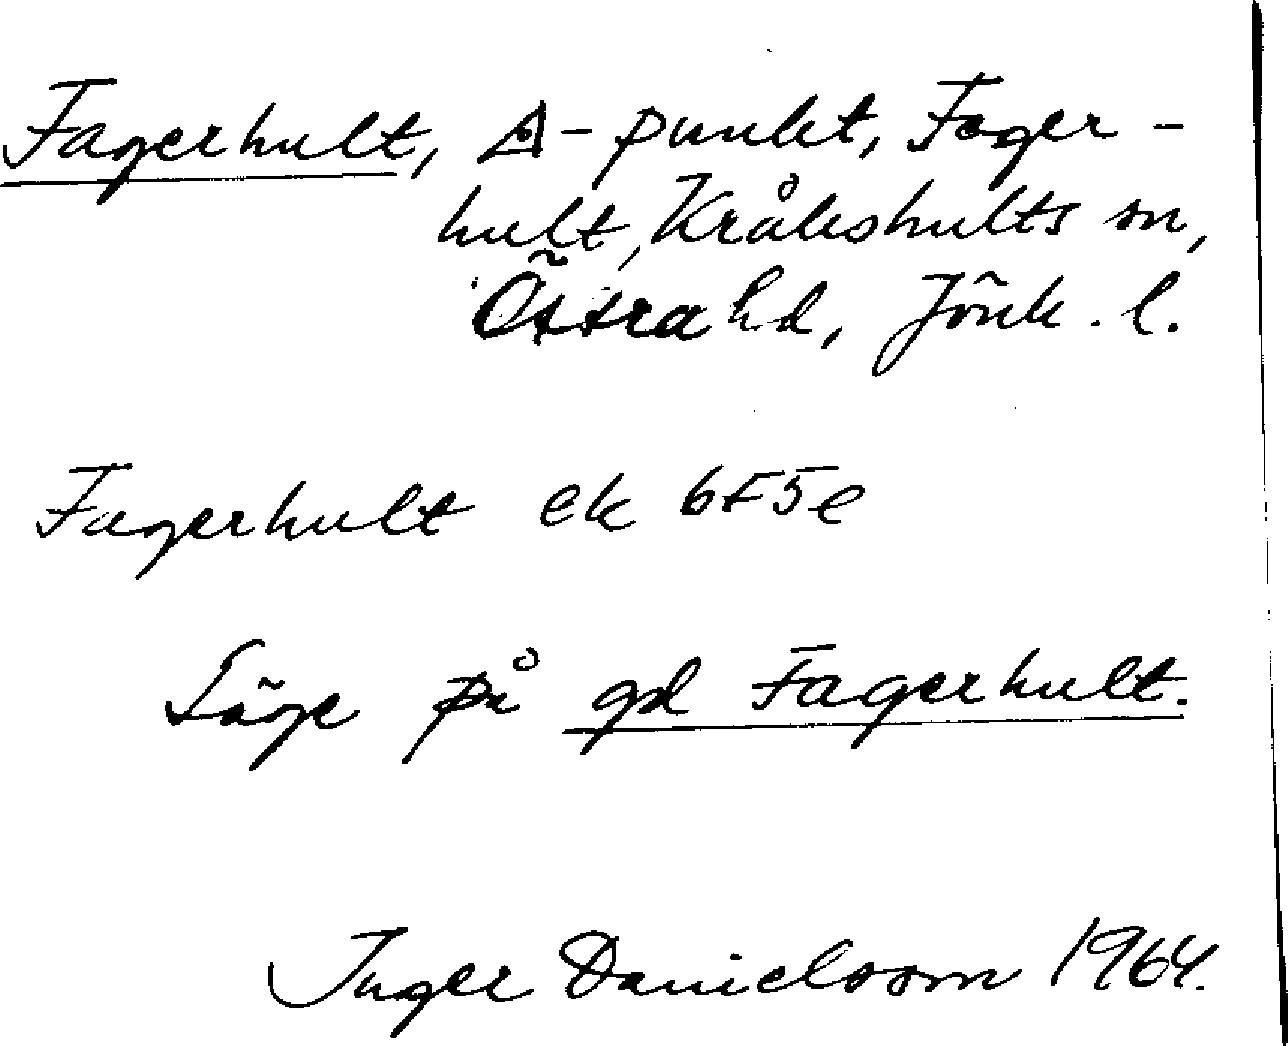 Fagerhult, △-punkt, Fager-
hult, Kråkshults sn,
Östra hd, Jönk. l.
Fagerhult ek 6F5e
Läge på gd Fagerhult.
Inger Danielsson 1964.